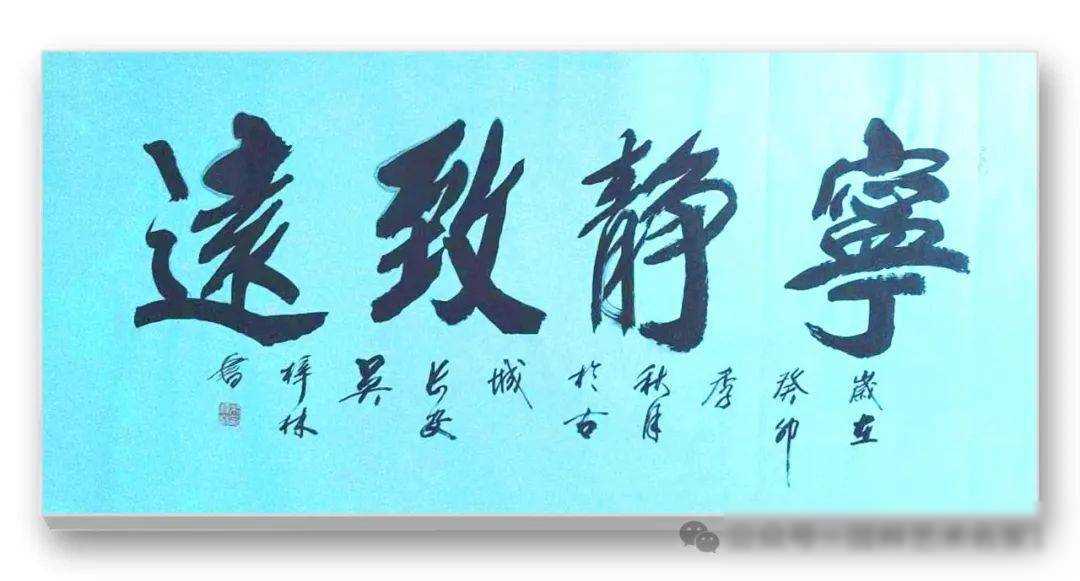 寧静致遠
歲在
癸卯
季
秋月
於古
城
长安
吴
梓林
書